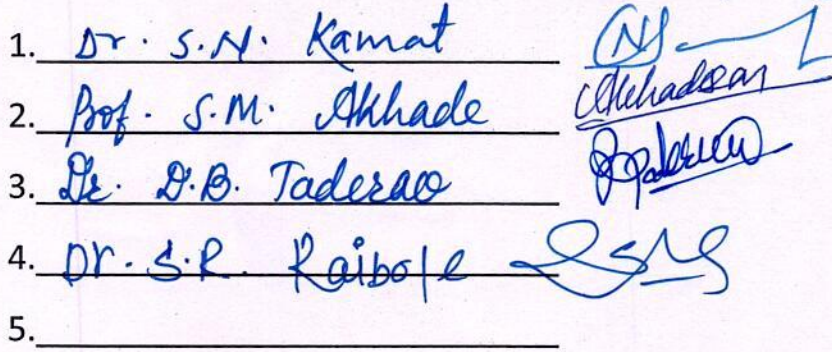 1. Dr. S.N. Kamat
2. Prof. S.M. Akhade
3. Dr. D.B. Taderao
4. Dr. S.R. Raibole
5.